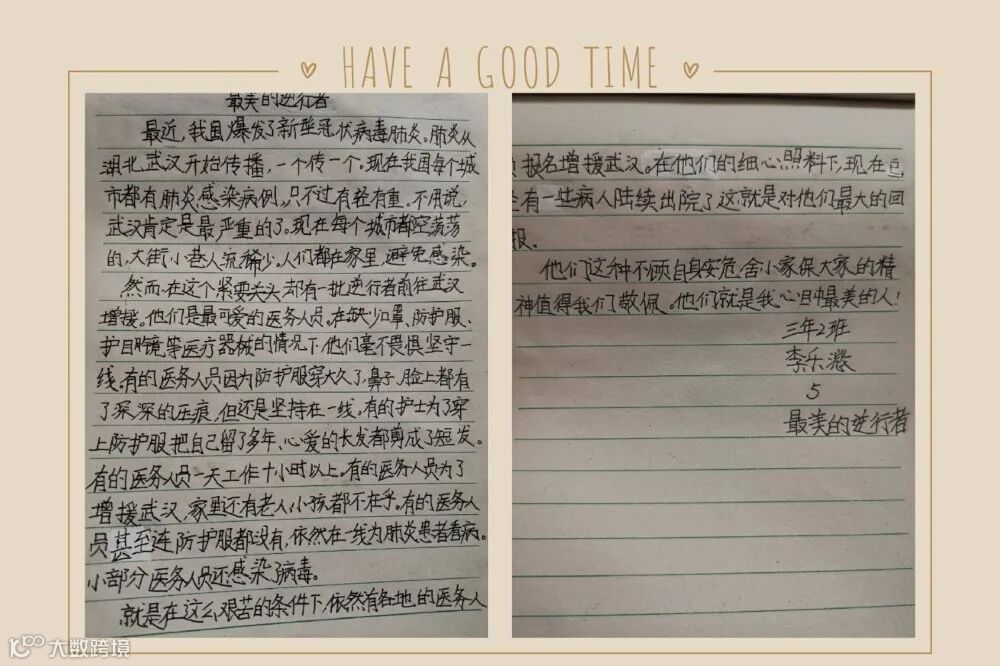 HAVE A GOOD TIME
最美的逆行者
最近，我国爆发了新型冠伏病毒肺炎。肺炎从
湖北武汉开始传播，一个传一个。现在我国每个城
市都有肺炎感染病例，只不过有轻有重。不用说，
武汉肯定是最严重的了。现在每个城市都空荡荡
的，大街小巷人流稀少。人们都在家里避免感染。
然而，在这个紧要关头却有一批逆行者前往武汉
增援。他们是最可爱的医务人员。在缺少口罩、防护服、
护目镜等医疗器械的情况下，他们毫不畏惧坚守一
线。有的医务人员因为防护服穿太久了，鼻子、脸上都有
了深深的压痕，但还是坚持在一线。有的护士为了穿
上防护服把自己留了多年、心爱的长发都剪成了短发。
有的医务人员一天工作十小时以上。有的医务人员为了
增援武汉，家里还有老人、小孩都不在乎。有的医务人
员甚至连防护服都没有，依然在一线为肺炎患者看病。
小部分医务人员还感染了病毒。
就是在这么艰苦的条件下，依然有各地的医务人
员报名增援武汉。在他们的细心照料下，现在已
经有一些病人陆续出院了，这就是对他们最大的回
报。
他们这种不顾自身安危，舍小家保大家的精
神值得我们敬佩。他们就是我心目中最美的人！
三年2班
李乐潞
5
最美的逆行者
大数跨境